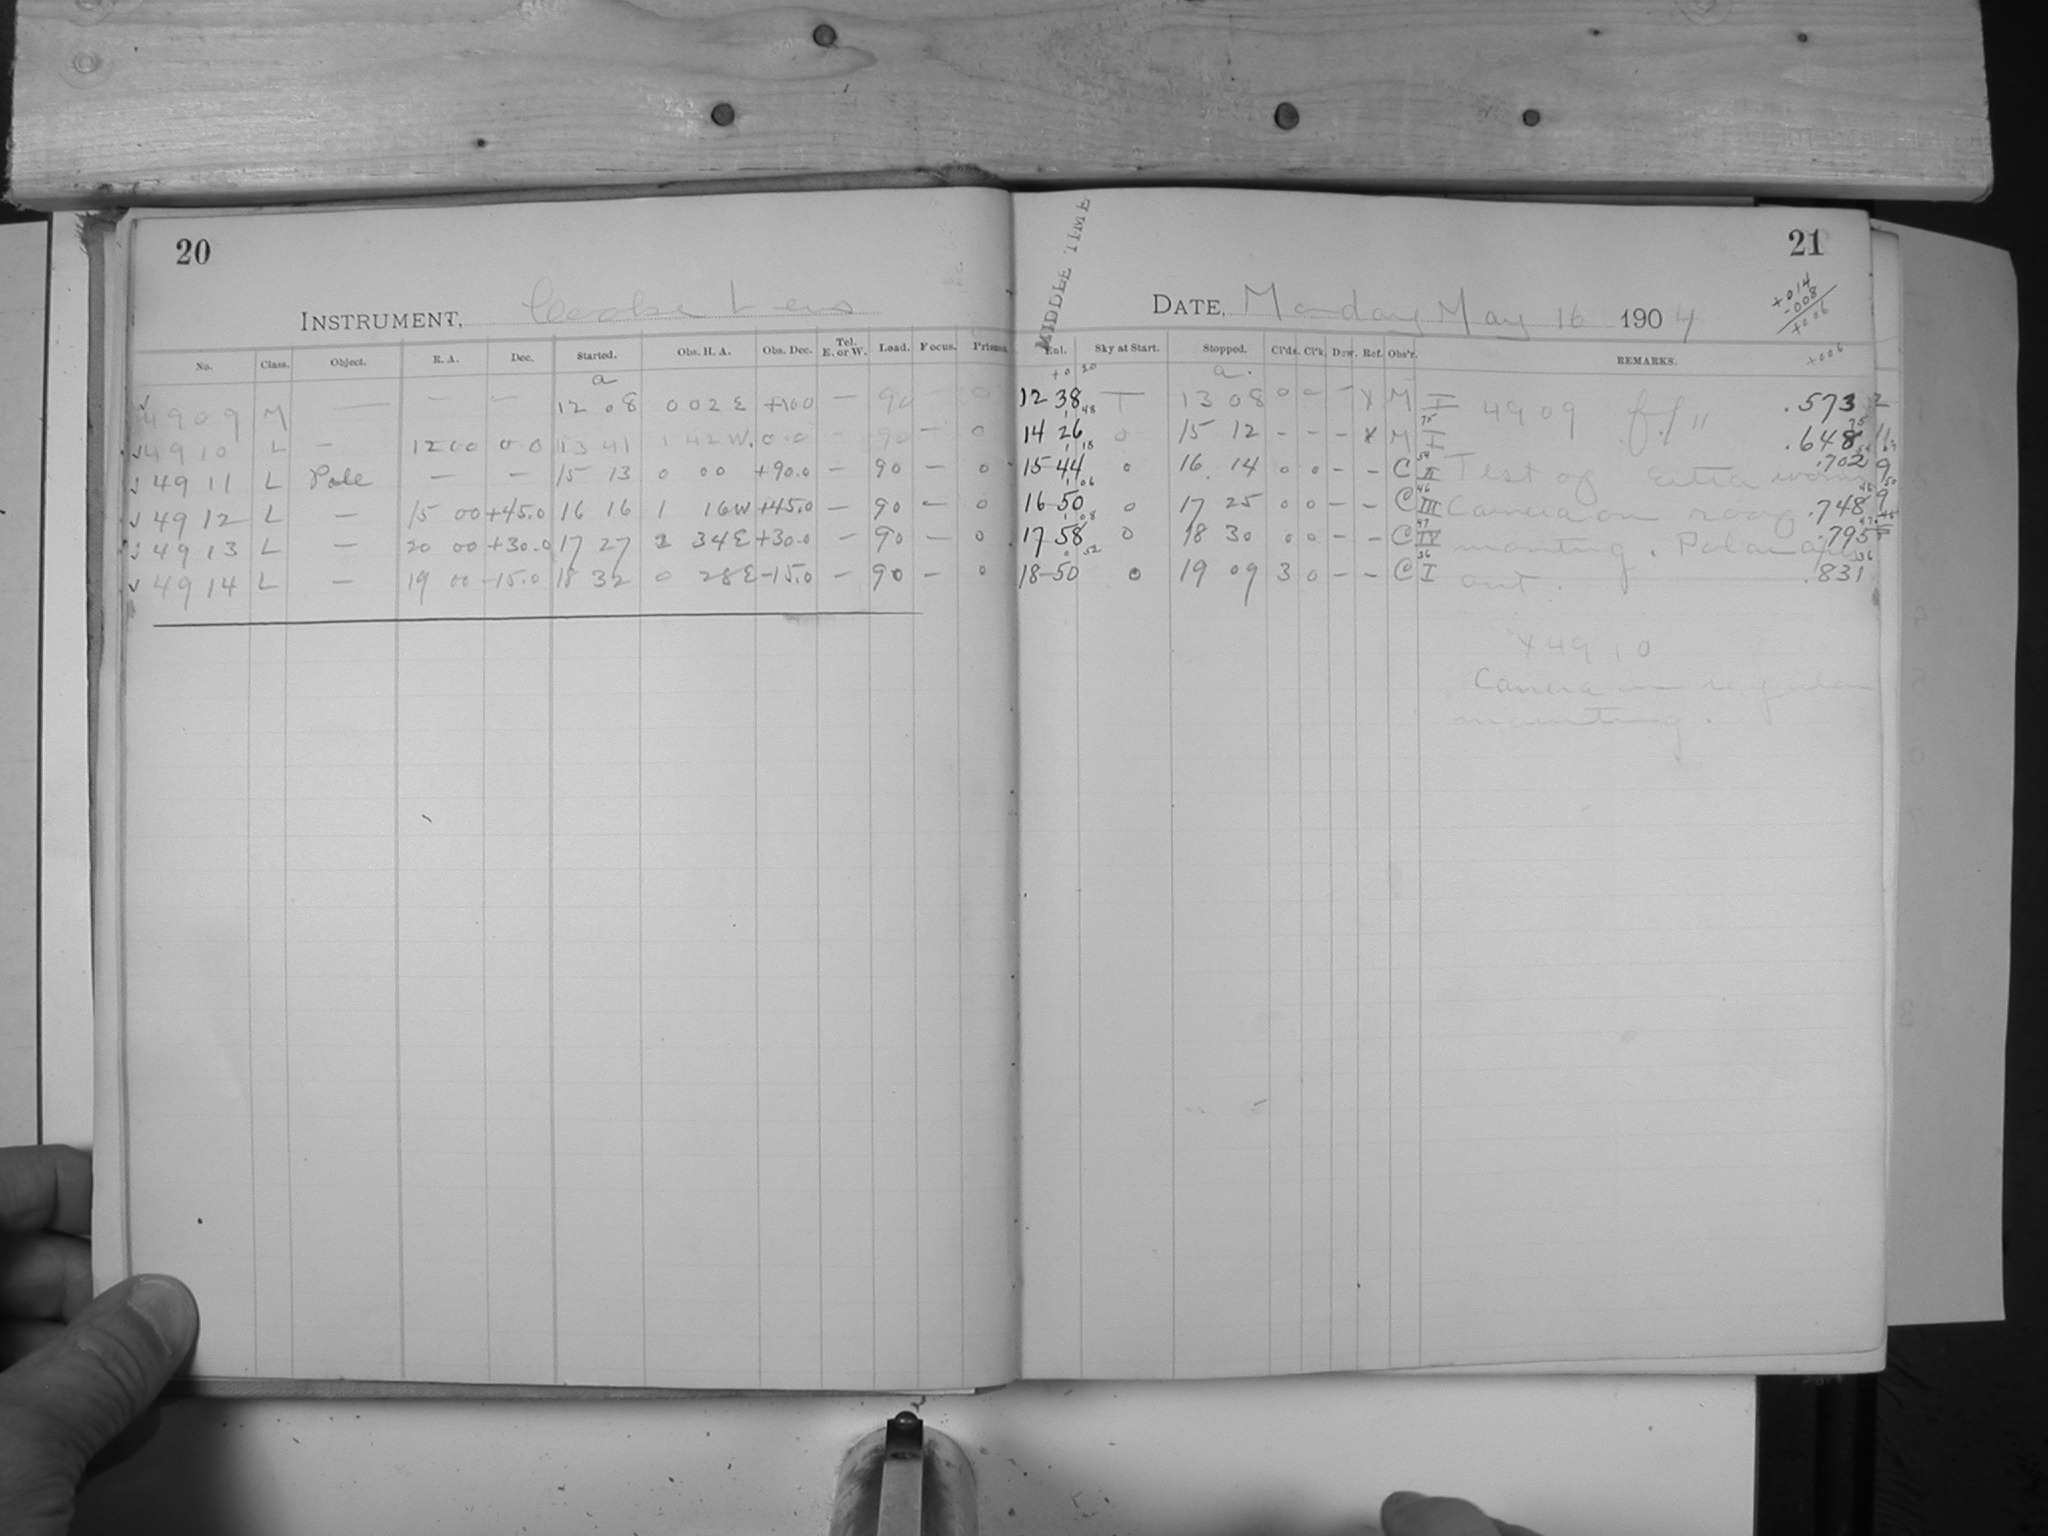 20
INSTRUMENT, Cooke Lens
No. Class. Object. R. A. Dec. Started. Obs. H. A. Obs. Dec. Tel. E. or W. Load. Focus. Prisms.
a
✓ 4909 M — — — 12 08 0 02 E — 90 — 0
✓ 4910 L — 12 00 0 0 13 41 1 42 W. 0.0 — 90 — 0
✓ 4911 L Pole — — 15 13 0 00 +90.0 — 90 — 0
✓ 4912 L — 15 00 +45.0 16 16 1 16 W +45.0 — 90 — 0
✓ 4913 L — 20 00 +30.0 17 27 2 34 E +30.0 — 90 — 0
✓ 4914 L — 19 00 -15.0 18 32 0 28 E -15.0 — 90 — 0
MIDDLE TIME
21
DATE, Monday May 16 1904
+014
-008
+006
Ent. Sky at Start. Stopped. Cl'ds. Cl'k. Dew. Ref. Obs'r. REMARKS.
+006
+0 20
a.
12 38 T 13 08 0 — — X M I 4909 f.f" .573 2
1 48
14 26 0 15 12 - - - X M I .648
1 18
15-44 0 16 14 0 0 - - C II Test of Extra wooden .702 9
1 06
16-50 0 17 25 0 0 - - C III Camera on roof .748 9
1 08
17-58 0 18 30 0 0 - - C IV mounting. Polar axis .795
0 52
18-50 0 19 09 3 0 - - C I out. .831
X 4910
Camera on regular
mounting.